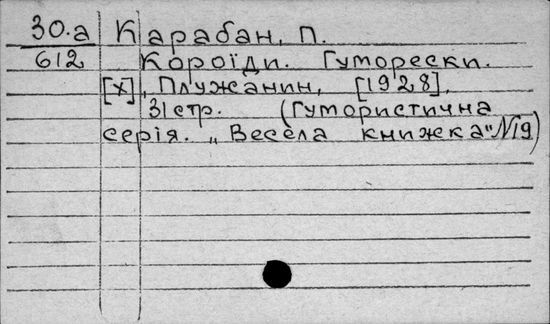 30.а Карабан, П.
612 Короїди. Гуморески.
[X], Плужанин, [1928],
31стр. (Гумористична
серія. „Весела книжка" №19)